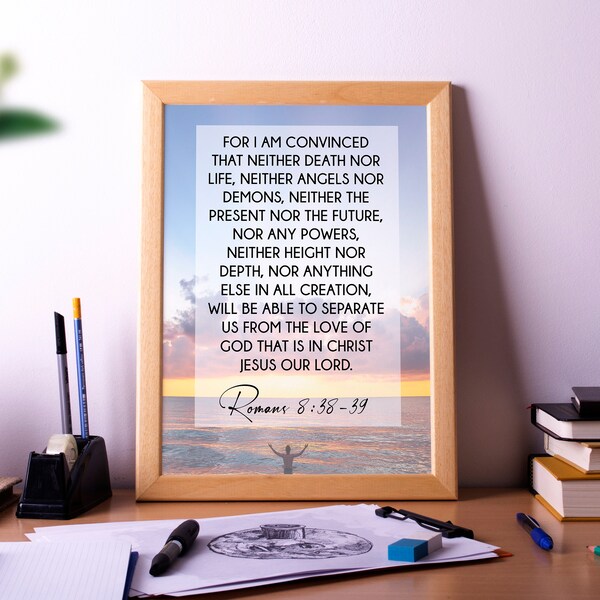 FOR I AM CONVINCED
THAT NEITHER DEATH NOR
LIFE, NEITHER ANGELS NOR
DEMONS, NEITHER THE
PRESENT NOR THE FUTURE,
NOR ANY POWERS,
NEITHER HEIGHT NOR
DEPTH, NOR ANYTHING
ELSE IN ALL CREATION,
WILL BE ABLE TO SEPARATE
US FROM THE LOVE OF
GOD THAT IS IN CHRIST
JESUS OUR LORD.
Romans 8:38-39